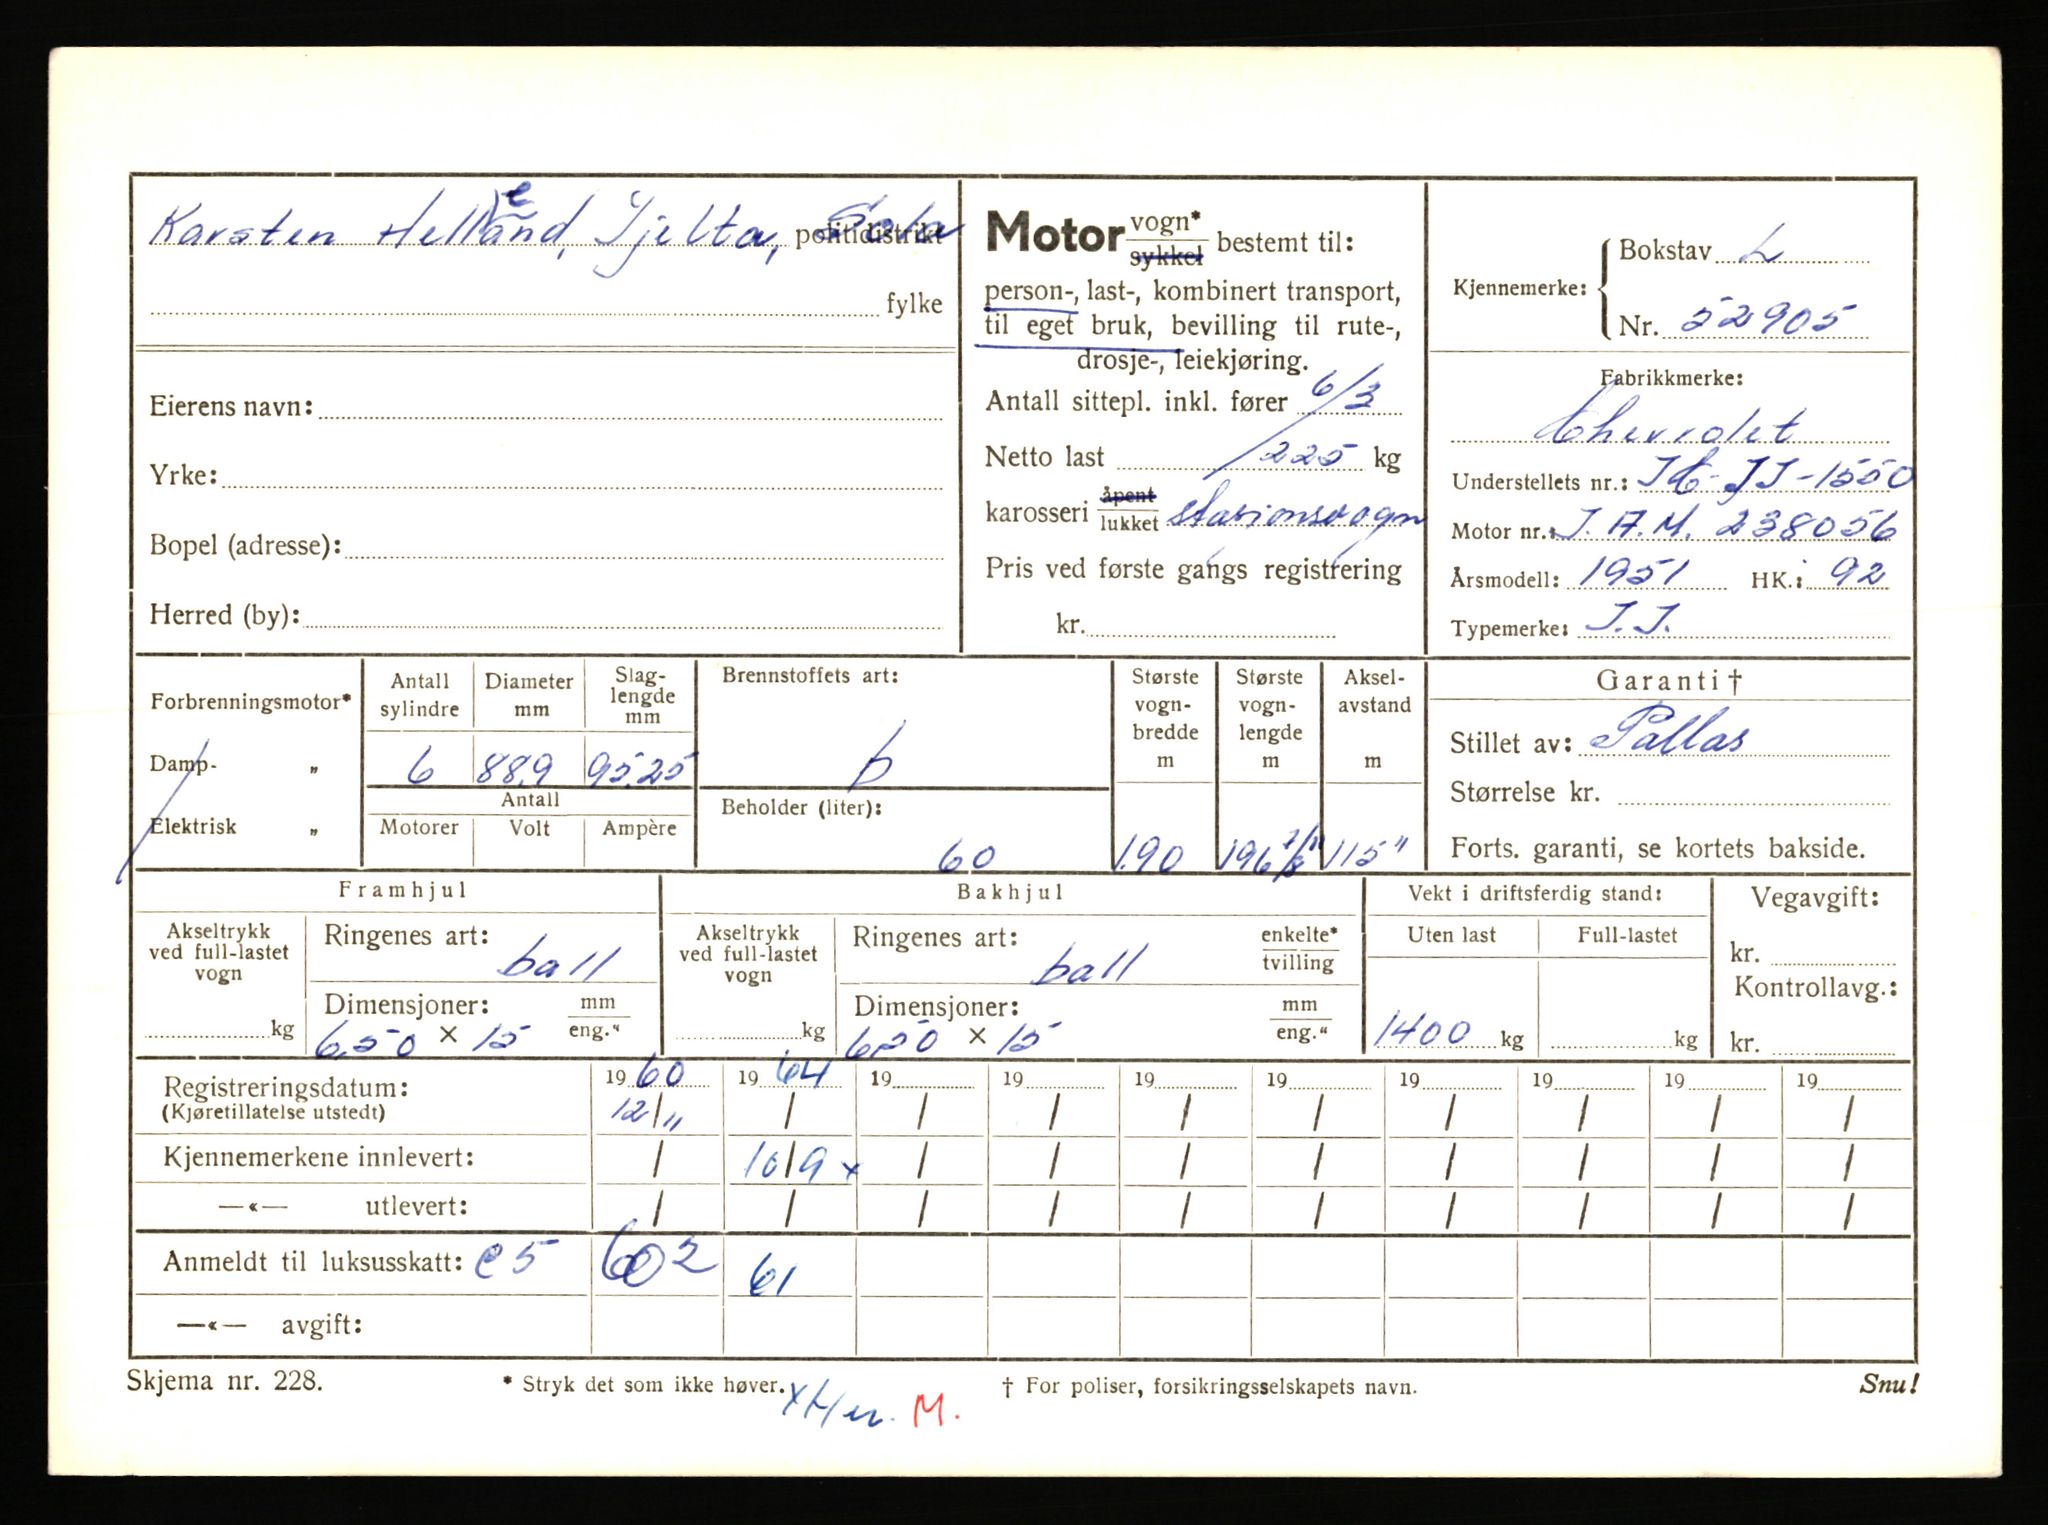 Karsten Helleland, Tjelta, Sola politidistrikt
fylke
Eierens navn:
Yrke:
Bopel (adresse):
Herred (by):
Motor vogn* bestemt til:
sykkel
person-, last-, kombinert transport,
til eget bruk, bevilling til rute-,
drosje-, leiekjøring.
Antall sittepl. inkl. fører 6/3
Netto last /225 kg
karosseri åpent
lukket stasjonsvogn
Pris ved første gangs registrering
kr.
Kjennemerke: Bokstav L
Nr. 52905
Fabrikkmerke:
Chevrolet
Understellets nr.: JJ-1550
Motor nr.: J.A.M. 238056
Årsmodell: 1951 HK.: 92
Typemerke: J.J.
Forbrenningsmotor*
Damp- „
Elektrisk „
Antall sylindre 6
Diameter mm 88,9
Slag-lengde mm 95,25
Antall
Motorer Volt Ampère
Brennstoffets art:
b
Beholder (liter):
60
Største vogn-bredde m 1.90
Største vogn-lengde m 196 7/8"
Aksel-avstand m 115"
Garanti †
Stillet av: Pallas
Størrelse kr.
Forts. garanti, se kortets bakside.
Framhjul
Akseltrykk ved full-lastet vogn
kg
Ringenes art:
ball
Dimensjoner: mm
6,50 × 15 eng."
Bakhjul
Akseltrykk ved full-lastet vogn
kg
Ringenes art: enkelte*
ball tvilling
Dimensjoner: mm
6,50 × 15 eng."
Vekt i driftsferdig stand:
Uten last Full-lastet
1400 kg kg
Vegavgift:
kr.
Kontrollavg.:
kr.
Registreringsdatum: 1960 1964 19 19 19 19 19 19 19 19
(Kjøretillatelse utstedt) 12/11 / / / / / / / / /
Kjennemerkene innlevert: / 10/9 x / / / / / / / /
—«— utlevert: / / / / / / / / / /
Anmeldt til luksusskatt: e5 602 61
—«— avgift:
Skjema nr. 228. * Stryk det som ikke høver. † For poliser, forsikringsselskapets navn. Snu!
M.